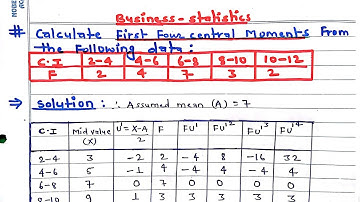 Business-statistics
# Calculate First Four central Moments from
the Following data:
C.I 2-4 4-6 6-8 8-10 10-12
F 2 4 7 3 2
⇒ Solution: ∴ Assumed mean (A) = 7
C.I Mid value (X) U'=X-A/2 F FU' FU'² FU'³ FU'⁴
2-4 3 -2 2 -4 8 -16 32
4-6 5 -1 4 -4 4 -4 4
6-8 7 0 7 0 0 0 0
8-10 9 1 3 3 3 3 3